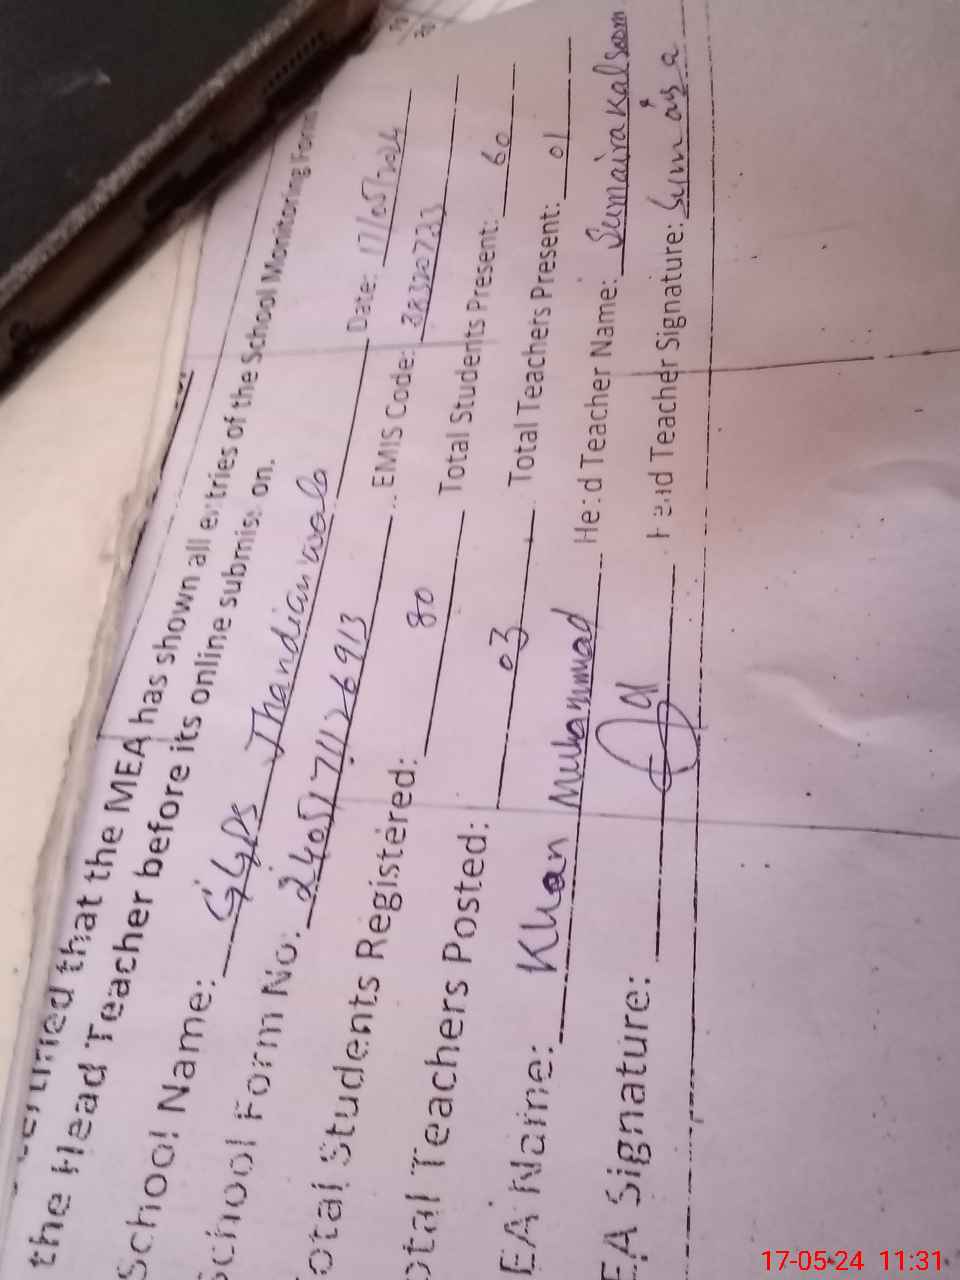 the Head Teacher before its online submission.
that the MEA has shown all entries of the School Monitoring Form
School Name: GGPS Jhandianwala Date: 17/05/2024
School Form No: 2405171126913 EMIS Code:
Total Students Registered: 80 Total Students Present: 60
Total Teachers Posted: 03 Total Teachers Present: 01
EA Name: Khan Muhammad Head Teacher Name: Sumaira Kalsoom
EA Signature: Head Teacher Signature: Sumaira
17-05-24 11:31